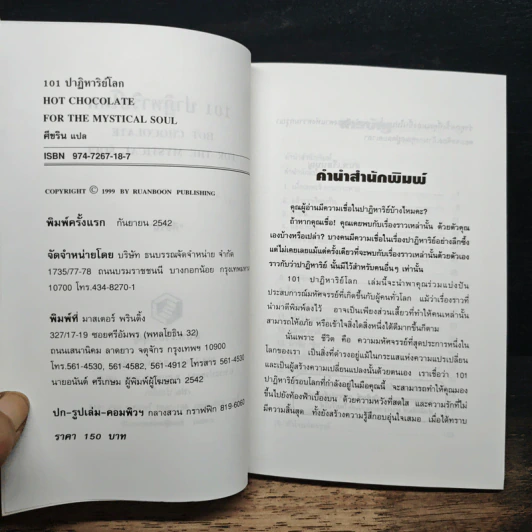 101 ปาฏิหาริย์โลก
HOT CHOCOLATE
FOR THE MYSTICAL SOUL
ศีขริน แปล
ISBN 974-7267-18-7
COPYRIGHT © 1999 BY RUANBOON PUBLISHING
พิมพ์ครั้งแรก กันยายน 2542
จัดจำหน่ายโดย บริษัท ธนบรรณจัดจำหน่าย จำกัด
1735/77-78 ถนนบรมราชชนนี บางกอกน้อย กรุงเทพมหา
10700 โทร.434-8270-1
พิมพ์ที่ มาสเตอร์ พริ้นติ้ง
327/17-19 ซอยศรีอัมพร (พหลโยธิน 32)
ถนนเสนานิคม ลาดยาว จตุจักร กรุงเทพฯ 10900
โทร.561-4530, 561-4582, 561-4912 โทรสาร 561-4530
นายอนันต์ ศรีเกษม ผู้พิมพ์ผู้โฆษณา 2542
ปก-รูปเล่ม-คอมพิวฯ กลางสวน กราฟฟิก 819-6060
ราคา 150 บาท
คำนำสำนักพิมพ์
คุณผู้อ่านมีความเชื่อในปาฏิหาริย์บ้างไหมคะ?
ถ้าหากคุณเชื่อ! คุณเคยพบกับเรื่องราวเหล่านั้น ด้วยตัวคุณ
เองบ้างหรือเปล่า? บางคนมีความเชื่อในเรื่องปาฏิหาริย์อย่างลึกซึ้ง
แต่ไม่เคยเลยแม้แต่ครั้งเดียวที่จะพบกับเรื่องราวเหล่านั้นด้วยตัวเอง
ราวกับว่าปาฏิหาริย์ นั้นมีไว้สำหรับคนอื่นๆ เท่านั้น
101 ปาฏิหาริย์โลก เล่มนี้จะนำพาคุณร่วมแบ่งปัน
ประสบการณ์มหัศจรรย์ที่เกิดขึ้นกับผู้คนทั่วโลก แม้ว่าเรื่องราวที่
นำมาตีพิมพ์ลงไว้ อาจเป็นเพียงส่วนเสี้ยวที่ทำให้คนเหล่านั้น
สามารถให้อภัย หรือเข้าใจสิ่งใดสิ่งหนึ่งได้ดีมากขึ้นก็ตาม
นั่นเพราะ ชีวิต คือ ความมหัศจรรย์ที่สุดประการหนึ่งใน
โลกของเรา เป็นสิ่งที่ดำรงอยู่แม้ในกระแสแห่งความแปรเปลี่ยน
และเป็นผู้สร้างความเปลี่ยนแปลงนั้นด้วยตนเอง เราเชื่อว่า 101
ปาฏิหาริย์รอบโลกที่กำลังอยู่ในมือคุณนี้ จะสามารถทำให้คุณมอง
ขึ้นไปยังท้องฟ้าเบื้องบน ด้วยความหวังที่สดใส และความรักที่ไม่
มีความสิ้นสุด ทั้งยังสร้างความรู้สึกอบอุ่นใจเสมอ เมื่อได้ทราบ